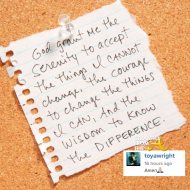 God grant me the
Serenity to accept
the things I CANNOT
change, the courage
to change the things
I CAN, And the
Wisdom to know
the DIFFERENCE.
toyawright
16 hours ago
Amen🙏